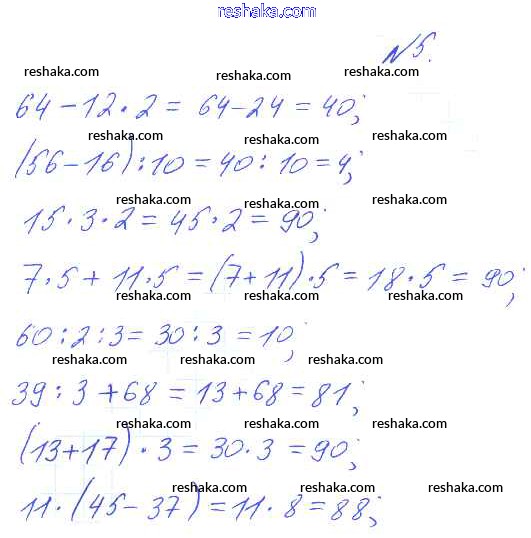 reshaka.com
№5.
reshaka.com reshaka.com reshaka.com
64 - 12 · 2 = 64 - 24 = 40;
reshaka.com reshaka.com reshaka.com
(56 - 16) : 10 = 40 : 10 = 4;
reshaka.com reshaka.com reshaka.com
15 · 3 · 2 = 45 · 2 = 90;
reshaka.com reshaka.com reshaka.com
7 · 5 + 11 · 5 = (7 + 11) · 5 = 18 · 5 = 90;
reshaka.com reshaka.com reshaka.com
60 : 2 : 3 = 30 : 3 = 10;
reshaka.com reshaka.com reshaka.com
39 : 3 + 68 = 13 + 68 = 81;
reshaka.com reshaka.com reshaka.com
(13 + 17) · 3 = 30 · 3 = 90;
reshaka.com reshaka.com reshaka.com
11 · (45 - 37) = 11 · 8 = 88;
reshaka.com reshaka.com